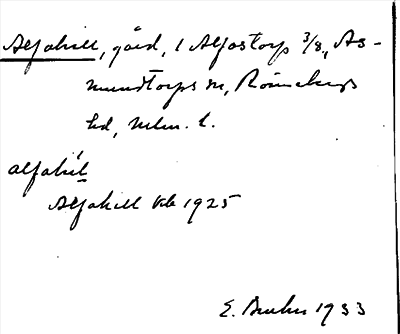 Alfahill, gård, 1 Alfastorp 3/8, As-
mundtorps sn, Rönnebergs
hd, Mlm. l.
alfahil
Alfahill kb 1925
E. Bruhn 1933